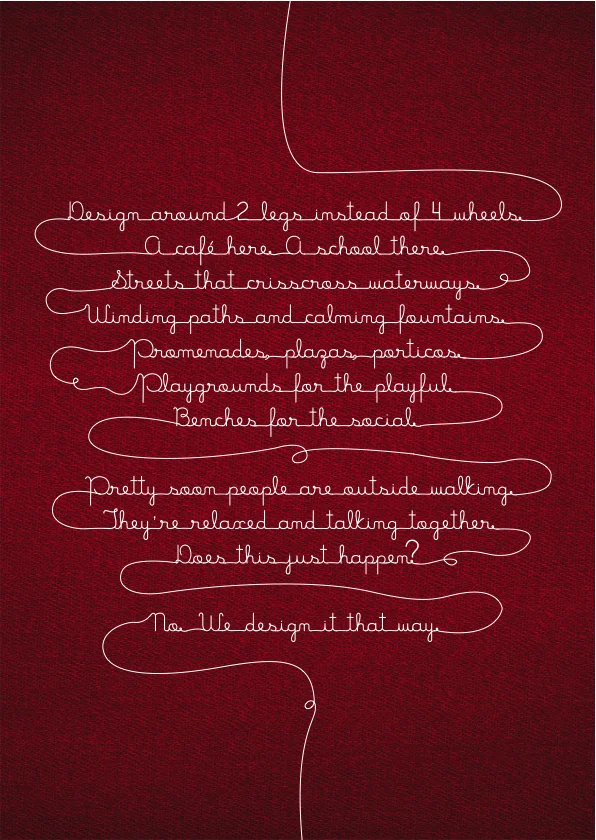 Design around 2 legs instead of 4 wheels.
A café here. A school there.
Streets that crisscross waterways.
Winding paths and calming fountains.
Promenades, plazas, porticos.
Playgrounds for the playful.
Benches for the social.
Pretty soon people are outside walking.
They're relaxed and talking together.
Does this just happen?
No. We design it that way.